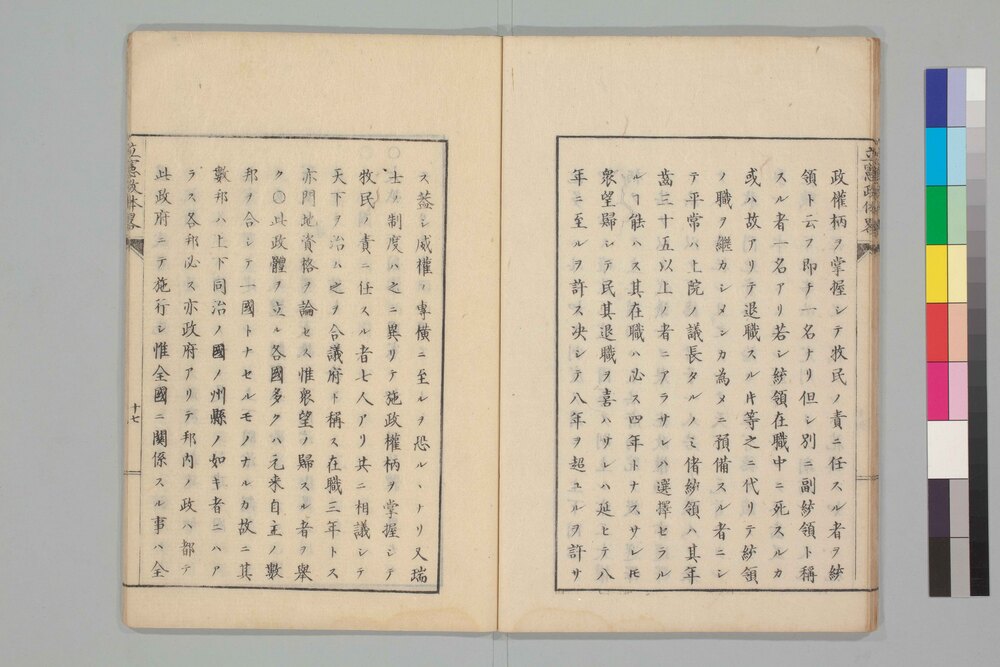 立憲政体畧
政權柄ヲ掌握シテ牧民ノ責ニ任スル者ヲ統
領ト云フ即チ一名ナリ但シ別ニ副統領ト稱
スル者一名アリ若シ統領在職中ニ死スルカ
或ハ故アリテ退職スル片等之ニ代リテ統領
ノ職ヲ繼カシメンカ為メニ預備スル者ニシ
テ平常ハ上院ノ議長タルノミ偖統領ハ其年
齒三十五以上ノ者ニアラサレハ選擇セラル
ルヿ能ハス其在職ハ必ス四年トナスサレ𪜈
衆望歸シテ民其退職ヲ喜ハサレハ延ヒテ八
年ニ至ルヲ許ス決シテ八年ヲ超ユルヲ許サ
ス蓋シ威權ノ專横ニ至ルヲ恐ルヽナリ又瑞
士ノ制度ハ之ニ異リテ施政權柄ヲ掌握シテ
牧民ノ責ニ任スル者七人アリ共ニ相議シテ
天下ヲ治ム之ヲ合議府ト稱ス在職三年トス
亦門地資格ヲ論セス惟衆望ノ歸スル者ヲ舉
ク〇此政體ヲ立ル各國多クハ元来自主ノ數
邦ヲ合シテ一國トナセルモノナルカ故ニ其
數邦ハ上下同治ノ國ノ州縣ノ如キ者ニハア
ラス各邦必ス亦政府アリテ邦内ノ政ハ都テ
此政府ニテ施行シ惟全國ニ關係スル事ハ全
立憲政体畧
十七